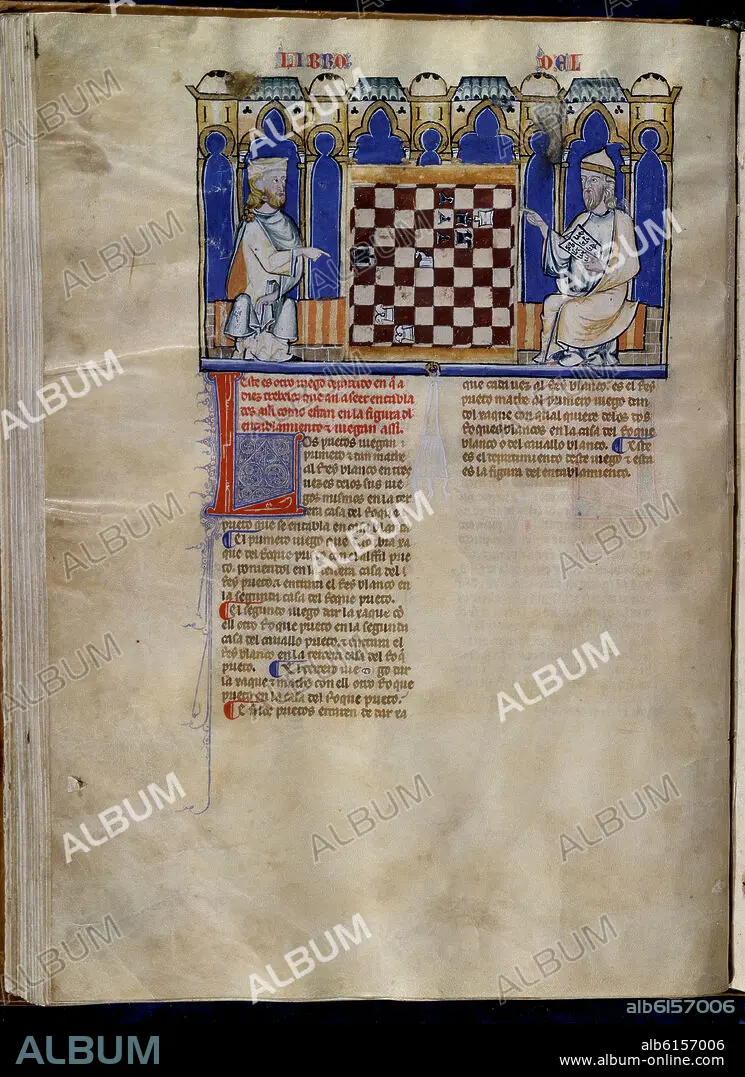 LIBRO DEL
Este es otro iuego departido en q̃ a
diez trebeios que an a seer entabla
dos assi como estan en la figura del
entablamiento ⁊ iuegan assi.
LOs prietos iuegan
primero ⁊ dan mathe
al Rey blanco en tres
uezes delos sus iue
gos mismos en la ter
cera casa del Roque
prieto que se entabla en
El primero iuego dar la xa
que del Roque prieto con el alffil prie
to. poniendol en la tercera casa del
Rey prieto ⁊ entrara el Rey blanco en
la segunda casa del Roque prieto.
El segundo iuego dar la xaque cõ
ell otro Roque prieto en la segunda
casa del cauallo prieto. ⁊ entrara el
Rey blanco en la tercera casa del Roq̃
prieto. El tercero iuego dar
la xaque ⁊ mathe con ell otro Roque
prieto en la casa del Roque prieto.
E si los prietos erraren de dar xa
que cada uez al Rey blanco. es el Rey
prieto mathe al primero iuego dan
dol xaque con qual quiere delos dos
Roques blancos en la casa del Roque
blanco o del cauallo blanco. Este
es el departimiento deste iuego ⁊ esta
es la figura del entablamiento.
ALBUM
alb6157006
ALBUM
alb6157006
www.album-online.com